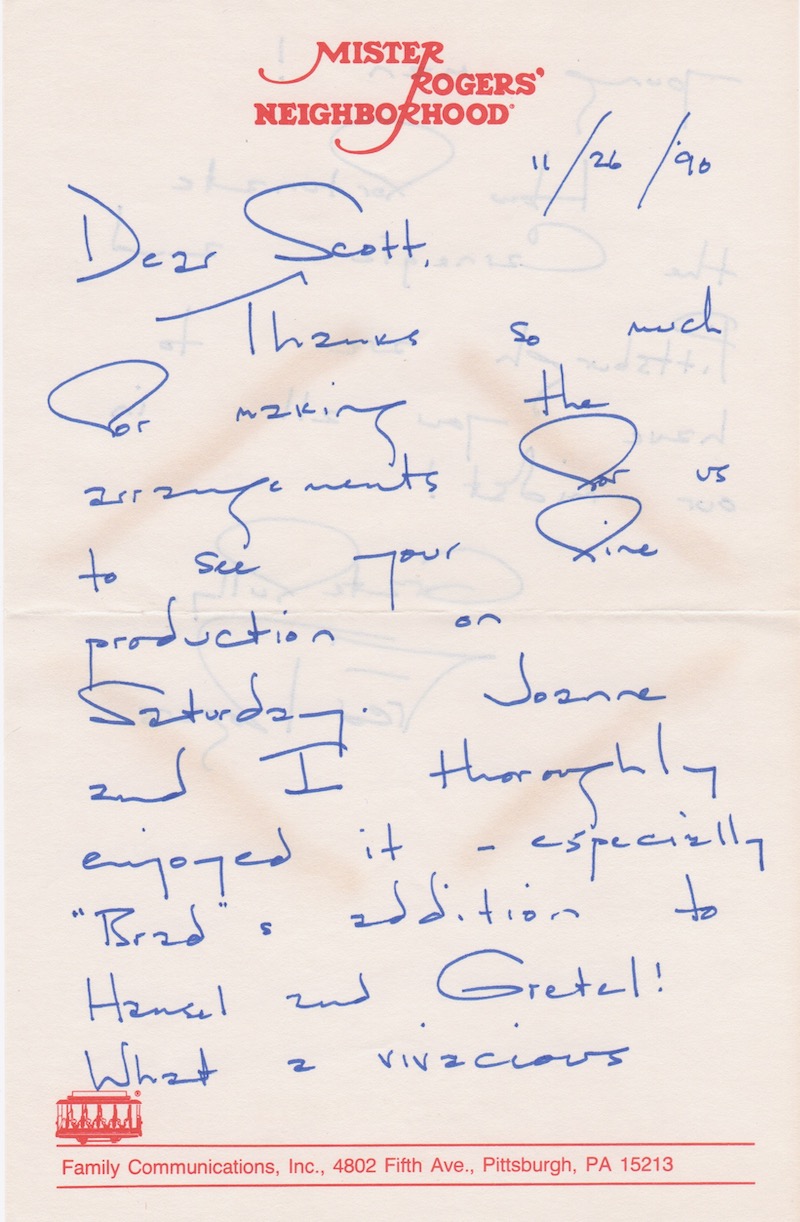 MISTER
ROGERS'
NEIGHBORHOOD®
11/26/90
Dear Scott,
Thanks so much
for making the
arrangements for us
to see your fine
production on
Saturday. Joanne
and I thoroughly
enjoyed it - especially
"Brad"s addition to
Hansel and Gretel!
What a vivacious
®
Family Communications, Inc., 4802 Fifth Ave., Pittsburgh, PA 15213